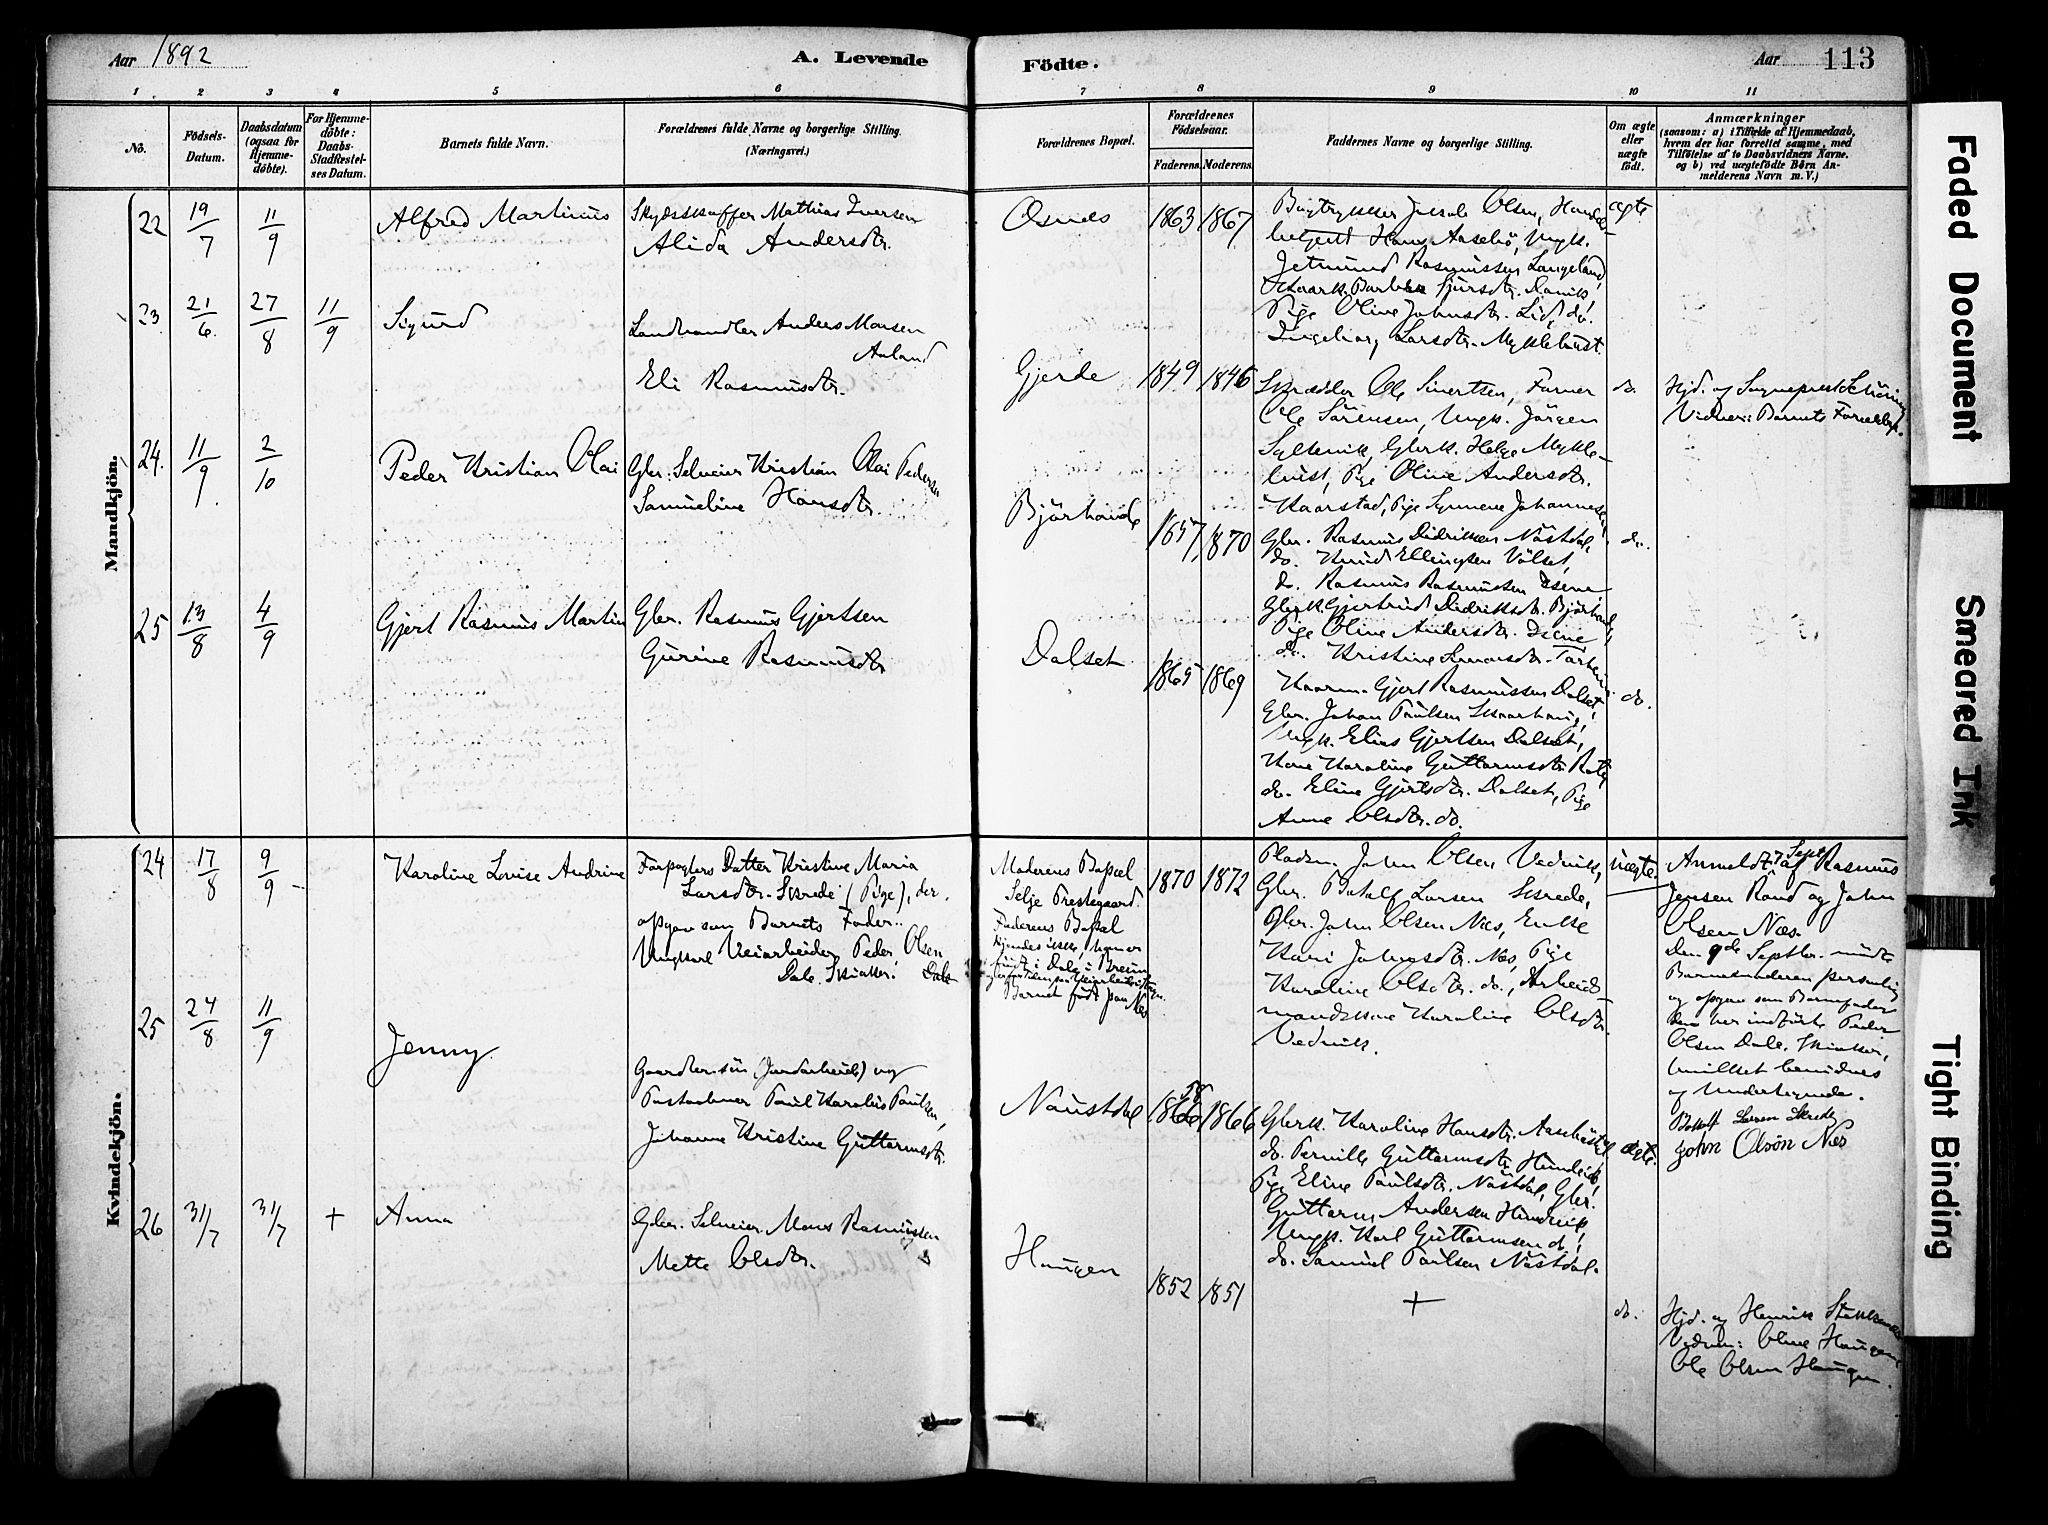 Aar 1892
A. Levende
Födte.
Aar
113
1 2 3 4 5 6 7 8 9 10 11
No.
Födsels-
Datum.
Daabsdatum
(ogsaa for
Hjemme-
döbte).
For Hjemme-
döbte:
Daabs-
Stadfæstel-
ses Datum.
Barnets fulde Navn.
Forældrenes fulde Navne og borgerlige Stilling.
(Næringsvei.)
Forældrenes Bopæl.
Forældrenes
Födselsaar.
Faderens. Moderens.
Faddernes Navne og borgerlige Stilling.
Om ægte
eller
uægte
födt.
Anmærkninger
(saasom: a) i Tilfælde af Hjemmedaab,
hvem der har forrettet samme, med
Tilföielse af to Daabsvidners Navne.
og b) ved uægtefödte Börn An-
melderens Navn m. V.)
Mandkjön.
22 19/7 11/9 Alfred Martinus
Skydsskaffer Mathias Iversen
Alida Andersdtr.
Osnes 1863 1867
Olsen,
Hans Aasebö, Ungk.
Rasmussen Langeland,
Pige Oline Johnsdtr. Lid, do.
Ingeborg Larsdtr. Myklebust.
ægte
23 21/6 27/8 11/9 Sigurd
Landhandler Anders Monsen
Aaland
Eli Rasmusdtr.
Gjerde 1849 1846
Skrædder Ole Sivertsen, Farver
Ole Sörensen, Ungk. Jörgen
Gbrk. Helge Mykle-
bust, Pige Oline Andersdtr.
Kaarstad, Pige
do.
Hjd. og Sogneprest
Vidner: Barnets Forældre.
24. 11/9 2/10 Peder Kristian Olai
Gbr. Selveier Kristian Olai Pedersen
Samueline Hansdtr.
Björhovde 1857 1870
Gbr. Rasmus Didriksen Nöstdal,
do. Knud Ellingsen Völset,
do. Rasmus Rasmussen Isene
Gbrk Gjertrud Didriksdtr. Björhovde,
Pige Oline Andersdtr. Isene
do. Kristine
do.
25 13/8 4/9 Gjert Rasmus Martin
Gbr. Rasmus Gjertsen
Gurine Rasmusdtr
Dalset 1865 1869
Kaarm. Gjert Rasmussen Dalset,
Gbr. Johan Paulsen Skaarhaug,
Ungk. Elias Gjertsen Dalset,
Kone Karoline Guttormsdtr.
do. Eline Gjertsdtr. Dalset, Pige
Anne Olsdtr. do.
do.
Kvindekjön.
24 17/8 9/9 Karoline Lovise Andrine
Forpagters Datter Kristine Maria
Larsdtr. Skrede (Pige), der
opgav som Barnets Fader:
Ungkarl Veiarbeider Peder Olsen
Dale. Skiaker. Dale
Moderens Bopæl
Selje Prestegaard.
Faderens Bopæl
Barnet födt paa Næs
1870 1872
Pladsm. John Olsen Vedvik,
Gbr. Botolf Larsen Skrede,
Gbr. John Olsen Næs, Enke
Kari Johnsdtr. Næs, Pige
Karoline Olsdtr. do., Arbeids
mandskone Karoline Olsdtr.
Vedvik.
uægte.
Anmeldt 7 Sept af Rasmus
Jensen Rand og John
Olsen Næs.
Den 9de Septbr. mödte
Barnemoderen personlig
og opgav som Barnefader
den her indförte Peder
Olsen Dale, Skiaker,
hvilket bevidnes
og undertegnede.
Botolf Larsen Skrede
John Olsön Næs
25 24/8 11/9 Jenny
Gaardbrersön (Jordarbeide) og
Postaabner Paul Karolus Paulsen,
Johanne Kristine Guttormsdtr.
Naustdal 1866
Gbrk. Karoline Hansdtr.
do. Pernille Guttormsdtr. Hundeik,
Pige Eline Paulsdtr. Nöstdal, Gbr.
Guttorm Andersen Hundeik,
Ungk. Karl Guttormsen do.,
do. Samuel Paulsen Nöstdal.
ægte.
26 31/7 31/7 + Anna
Gbr. Selveier Mons Rasmussen
Mette Olsdtr.
Haugen
1852 1851
+
do.
Hjd. og Henrik
Vidner: Oline Haugen
Ole Olsen Haugen.
Faded Document
Smeared Ink
Tight Binding